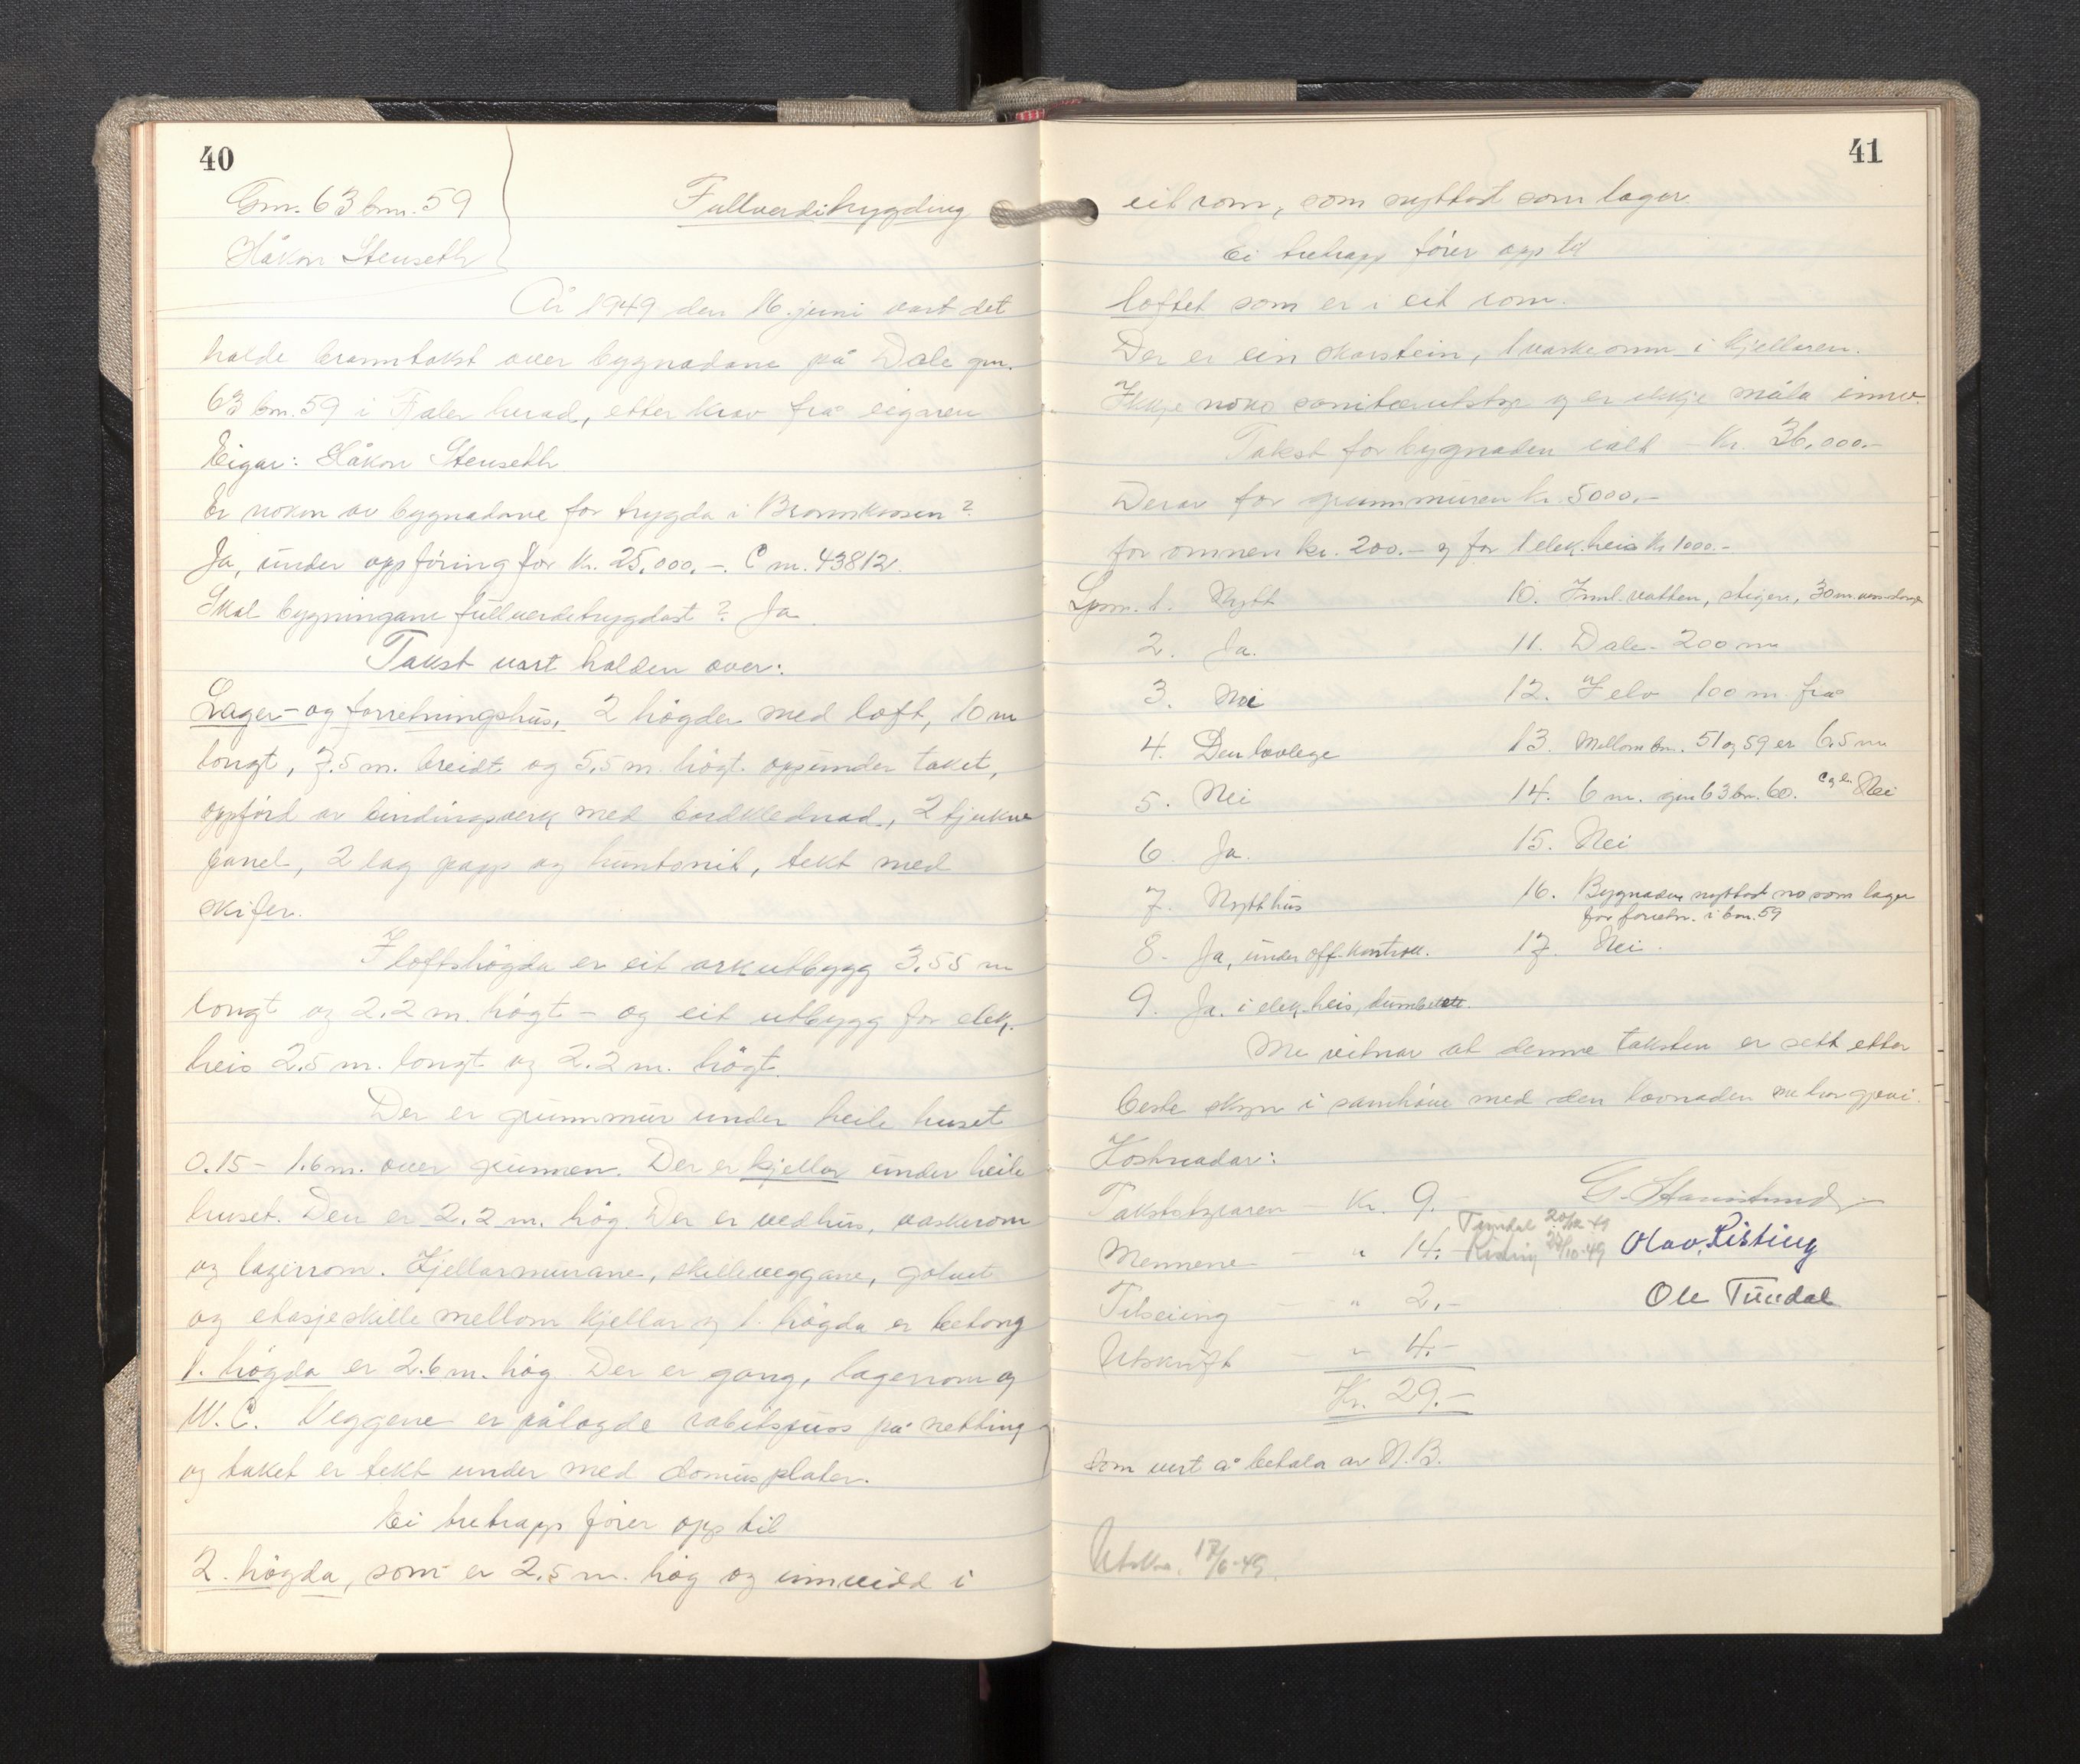 40
Gnr. 63 bnr. 59
Fullverditrygding
Håkon Stenseth
År 1949 den 16. juni vart det
halde branntakst over bygnadane på Dale gnr.
63 bnr. 59 i Fjaler herad, etter krav frå eigaren
Eigar: Håkon Stenseth.
Er nokon av bygnadane før trygda i Brannkassen?
Ja, under oppföring for kr. 25.000.-. C nr. 43812.
Skal bygningane fullverditrygdast? Ja
Takst vart halden over:
Lager- og forretningshus, 2 högder med loft, 10 m
langt, 7.5 m. breidt og 5,5 m. högt oppunder taket,
oppförd av bindingsverk med bordklednad, 2 tjukne
panel, 2 lag papp og huntonit, tekt med
skifer.
I loftshögda er eit arkutbygg 3.55 m
langt og 2.2 m. högt - og eit utbygg for elek.
heis 2.5 m. langt og 2.2 m. högt.
Der er grunnmur under heile huset
0.15 - 1.6 m. over grunnen. Der er kjellar under heile
huset. Den er 2.2 m. hög. Der er vedhus, vaskerom
og lagerrom. Kjellarmurane, skilleveggane, golvet
og etasjeskille mellom kjellar og 1. högda er betong
1. högda er 2.6 m. hög. Der er gang, lagerrom og
W.C. Veggene er pålagde rabitspuss på netting
og taket er tekt under med domusplater.
Ei tretrapp förer opp til
2. högda, som er 2.5 m. hög og innreidd i
41
eit rom, som nyttast som lager.
Ei tretrapp förer opp til
loftet som er i eit rom.
Der er ein skorstein, 1 vaskeomn i kjellaren.
Ikkje noko sanitærutstyr og er ikkje måla innv.
Takst for bygnaden ialt - Kr. 36,000.-
Derav for grunnmuren kr. 5000,-
for omnen kr. 200.- og for 1 elek.heis kr 1000.-
Spm. 1. Nytt
10. Innl. vatten, stigen, 30 m.
2. Ja.
11. Dale - 200 m
3. Nei
12. I elv 100 m. frå
4. Den lovlege
13. Mellom bnr. 51 og 59 er 6.5 m
5. Nei
14. 6 m. gnr 63 bnr. 60. Nei
6. Ja.
15. Nei
7. Nytt hus
16. Bygnaden nyttast no som lager
for forretn. i bnr. 59
8. Ja, under off. kontroll.
17. Nei.
9. Ja. i elek. heis,
Me vitnar at denne taksten er sett etter
beste skyn i samhöve med den lovnaden me har gjevi.
Kostnadar:
Takststyraren - Kr. 9.-
Mennene - " 14.- Tundal
Risting 27/10-49
Olav Risting
Tilseiing - " 2,-
Ole Tundal
Utskrift - " 4.-
Kr. 29.-
Som vert å betala av N.B.
Utskr. 17/6-49.